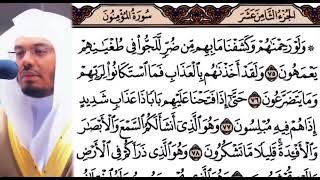 الجزء الثامن عشر
سورة المؤمنون
۞ وَلَوْ رَحِمْنَٰهُمْ وَكَشَفْنَا مَا بِهِم مِّن ضُرٍّ لَّلَجُّوا۟ فِى طُغْيَٰنِهِمْ
يَعْمَهُونَ ٧٥ وَلَقَدْ أَخَذْنَٰهُم بِٱلْعَذَابِ فَمَا ٱسْتَكَانُوا۟ لِرَبِّهِمْ
وَمَا يَتَضَرَّعُونَ ٧٦ حَتَّىٰٓ إِذَا فَتَحْنَا عَلَيْهِم بَابًا ذَا عَذَابٍ شَدِيدٍ
إِذَا هُمْ فِيهِ مُبْلِسُونَ ٧٧ وَهُوَ ٱلَّذِىٓ أَنشَأَ لَكُمُ ٱلسَّمْعَ وَٱلْأَبْصَٰرَ
وَٱلْأَفْـِٔدَةَ قَلِيلًا مَّا تَشْكُرُونَ ٧٨ وَهُوَ ٱلَّذِى ذَرَأَكُمْ فِى ٱلْأَرْضِ